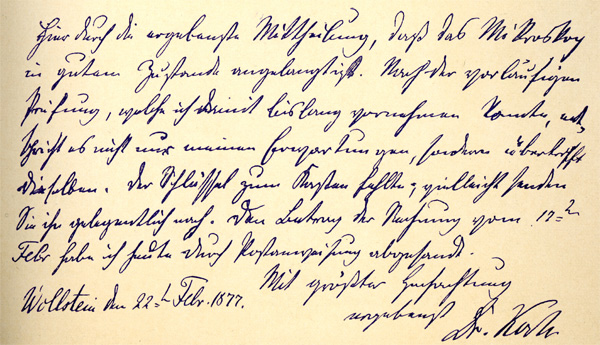 Hierdurch die ergebenste Mittheilung, daß das Mikroskop
in gutem Zustande angelangt ist. Nach der vorläufigen
Prüfung, welche ich damit bislang vornehmen konnte, ent-
spricht es nicht nur meinen Erwartungen, sondern übertrifft
dieselben. Der Schlüssel zum Kasten fehlte; vielleicht senden
Sie ihn gelegentlich nach. Den Betrag der Rechnung vom 17ten
Febr habe ich heute durch Postanweisung abgesandt.
Mit größter Hochachtung
Wollstein den 22t Febr. 1877.
ergebenst Dr. Koch